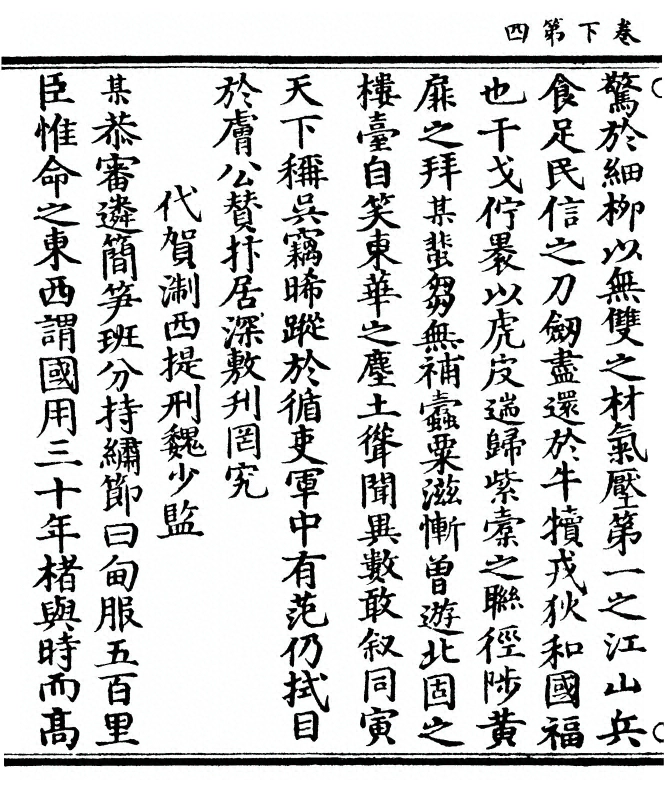 卷下第四
驚於細柳以無雙之材氣壓第一之江山兵
食足民信之刀劒盡還於牛犢戎狄和國福
也干戈佇褁以虎皮遄歸紫橐之聯徑陟黃
扉之拜某蜚芻無補蠧粟滋慚曽遊北固之
樓臺自笑東華之塵土聳聞異數敢叙同寅
天下稱吳竊晞蹤於循吏軍中有范仍拭目
於膚公賛抃居深敷刋罔究
代賀淛西提刑魏少監
某恭審遴簡笋班分持繡節曰甸服五百里
臣惟命之東西謂國用三十年楮與時而髙